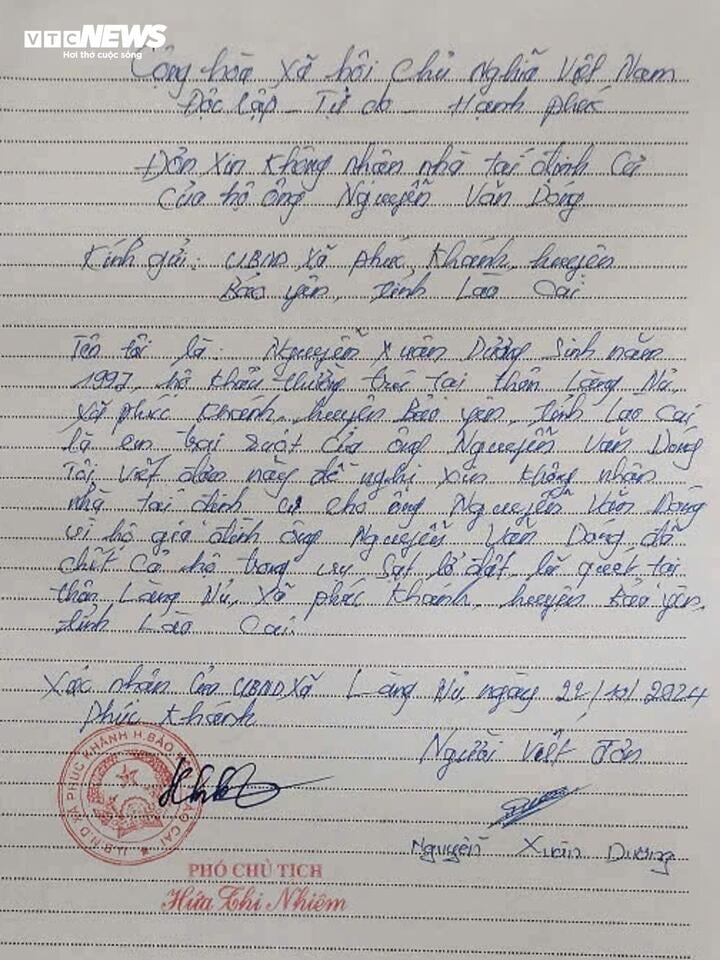 VTC NEWS
Hơi thở cuộc sống
Cộng hòa Xã hội Chủ Nghĩa Việt Nam
Độc lập - Tự do - Hạnh phúc
Đơn Xin Không nhận nhà tái định Cư
Của hộ ông Nguyễn Văn Dóng
Kính gửi: UBND Xã phúc Khánh, huyện
Bảo yên, tỉnh Lào Cai
Tên tôi là: Nguyễn Xuân Dương Sinh năm
1997, hộ khẩu thường trú tại thôn Làng Nủ,
Xã phúc Khánh, huyện Bảo yên, tỉnh Lào Cai
là em trai ruột Của ông Nguyễn Văn Dóng
Tôi viết đơn này đề nghị xin không nhận
nhà tái định cư cho ông Nguyễn Văn Dóng
vì hộ gia đình ông Nguyễn Văn Dóng đã
chết Cả hộ trong vụ Sạt lở đất, lũ quét tại
thôn Làng Nủ, Xã phúc Khánh, huyện Bảo yên,
tỉnh Lào Cai.
Xác nhận Của UBND Xã Làng Nủ, ngày 22/10/2024
phúc Khánh
Người viết đơn
U.B.N.D XÃ PHÚC KHÁNH H.BẢO LÀO CAI
Nguyễn Xuân Dương
PHÓ CHỦ TỊCH
Hứa Thi Nhiêm